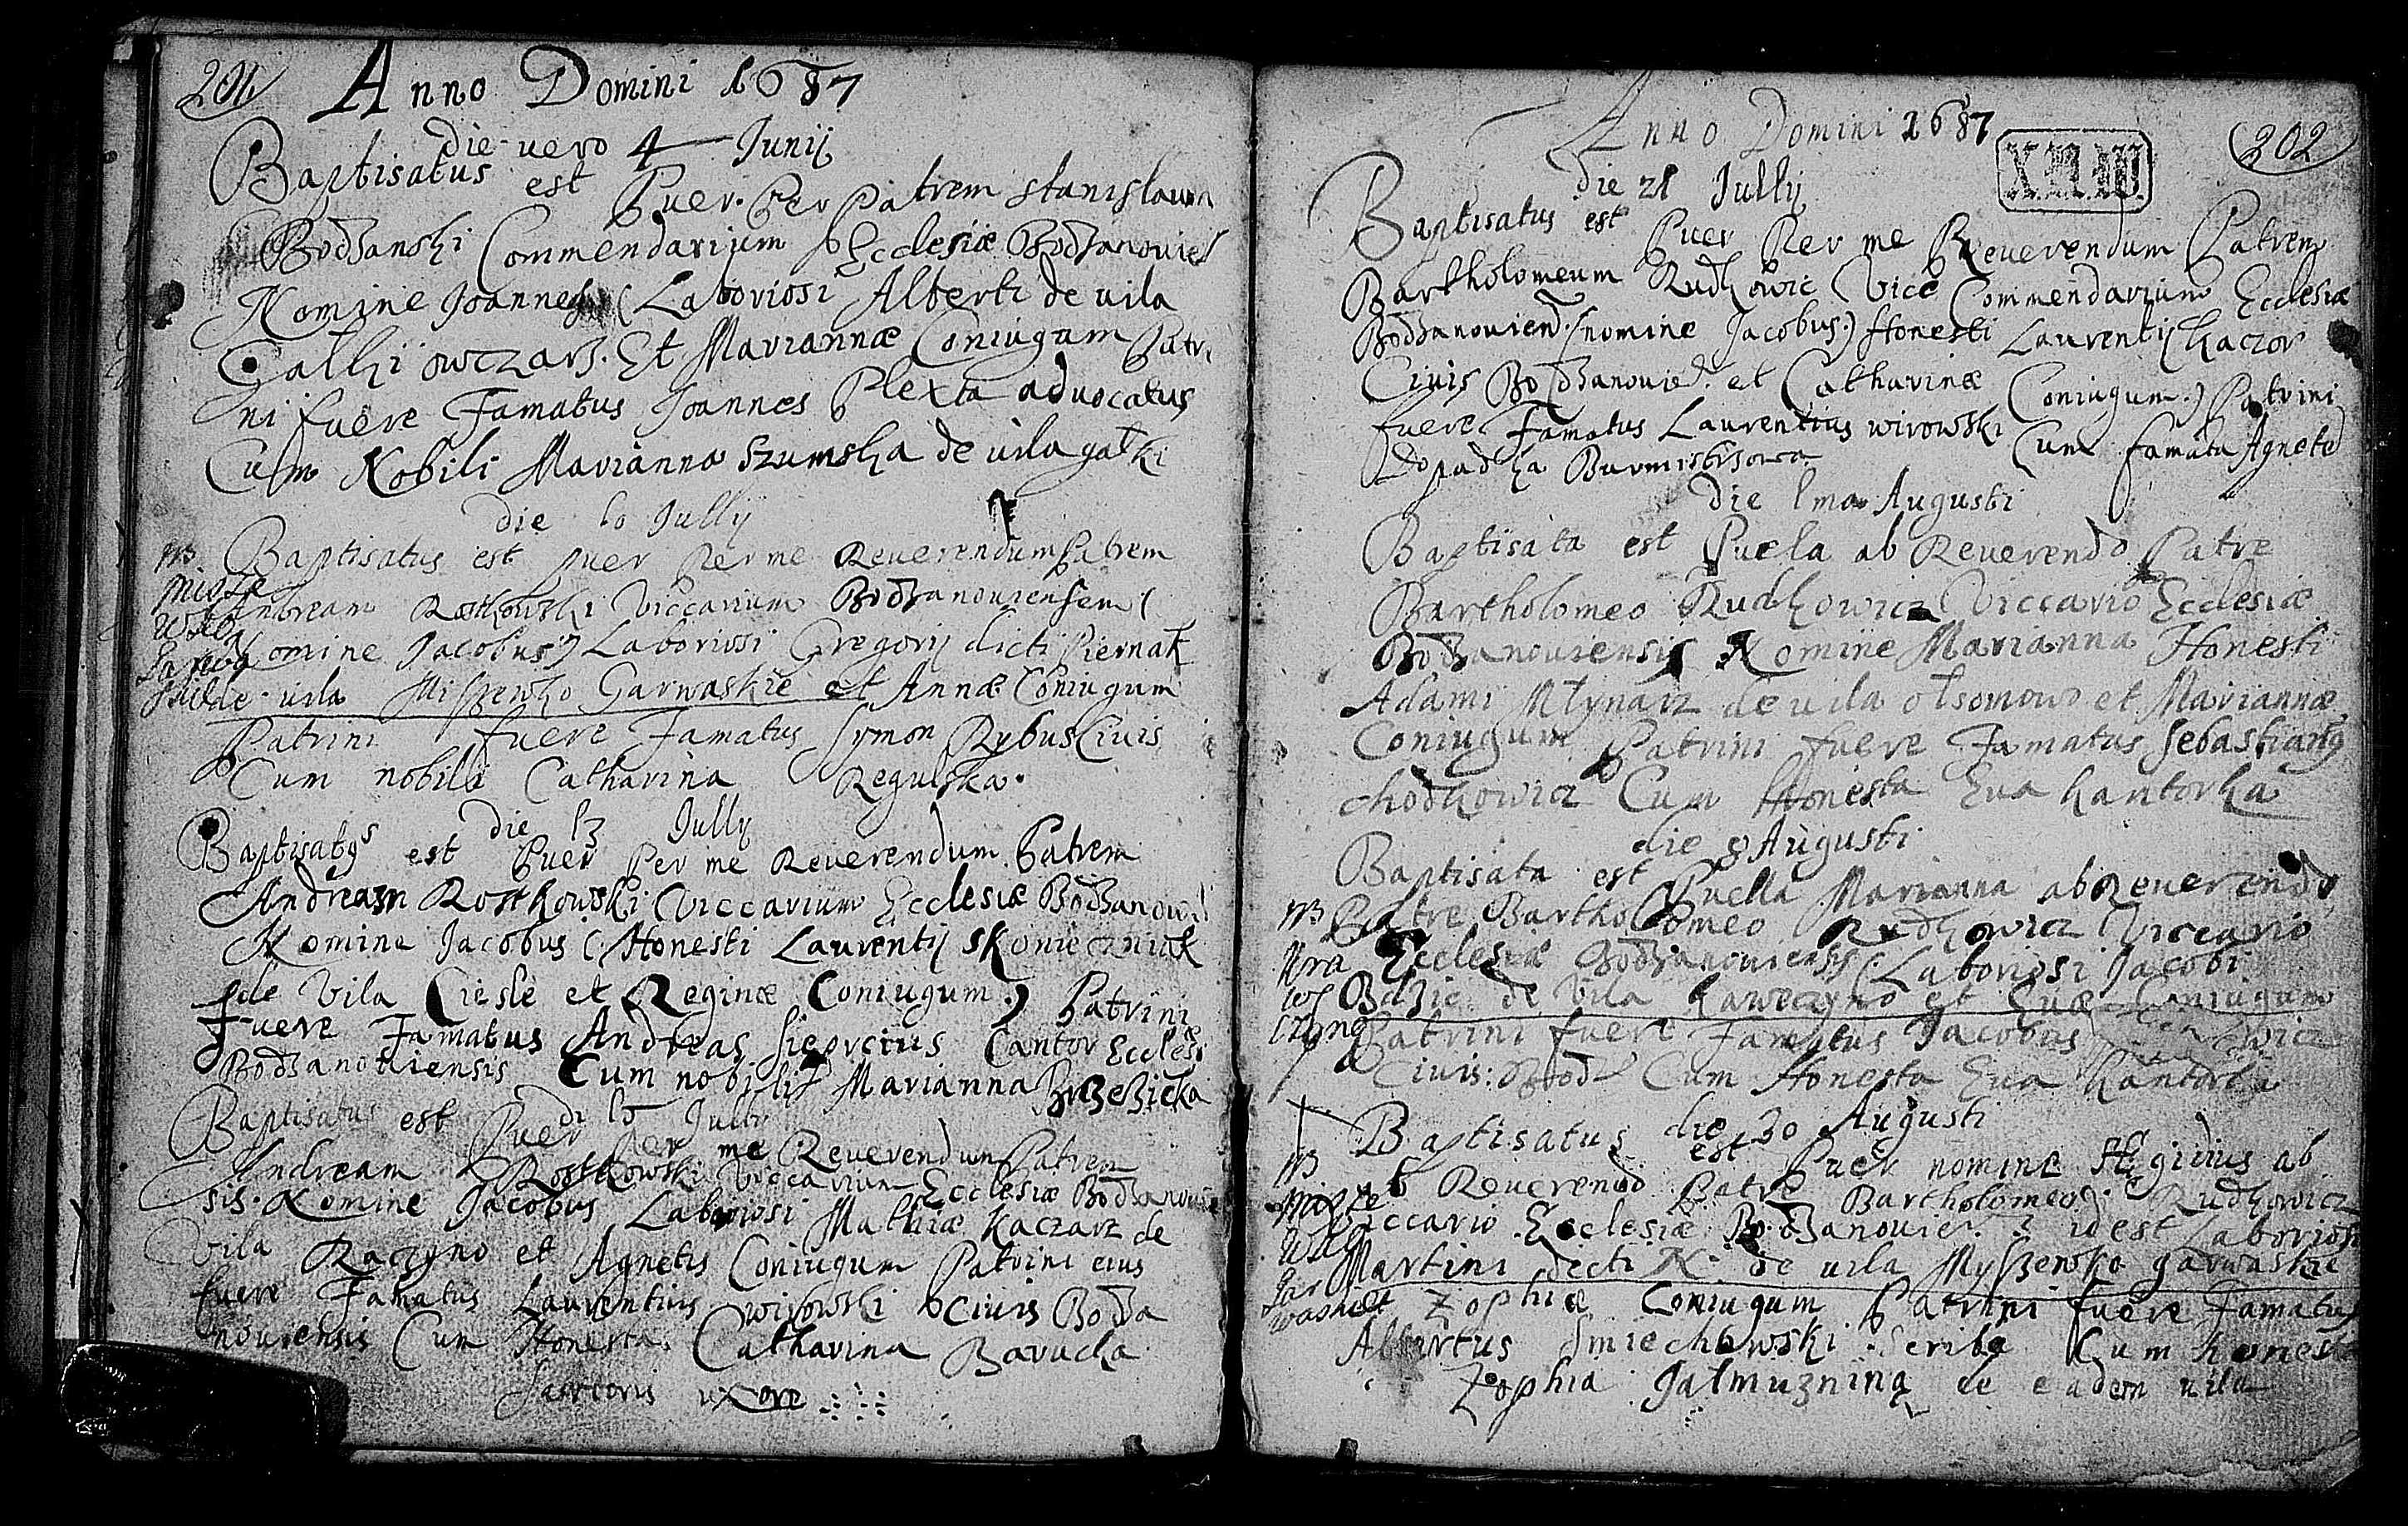 201
Anno Domini 1687
die vero 4 Junij
Baptisatus est Puer Per Patrem Stanislaum
Bodzanski Commendarium Ecclesiæ Bodzanovien
Nomine Joannes (Laboriosi Alberti de vila
Galki owczarz. Et Mariannæ Coniugum Patri
ni fuere Famatus Joannes Plexta advocatus
Cum Nobili Marianna Szumska de vila gałki
die 10 Jully
Baptisatus est puer Per me Reverendum Patrem
Andream Rostkowski Viccarium Bodzanoviensem (
Nomine Jacobus) Laboriosi Gregorij dicti Piernak
de vila Miszewko Garwaskie et Annæ Coniugum
Patrini fuere Famatus Symon Rybus Civis
Cum nobili Catharina Regulska.
die 13 Jully
Baptisatus est Puer Per me Reverendum Patrem
Andream Rostkowski Viccarium Ecclesiæ Bodzanovi
Nomine Jacobus (Honesti Laurentij Skonieczniick
de Vila Ciesle et Reginæ Coniugum) Patrini
Fuere Famatus Andreas Sieprcius Cantor Ecclesi
Bodzanoviensis Cum nobili Marianna Brzezicka
di 15 Jully
Baptisatus est Puer Per me Reverendum Patrem
Andream Rostkowski Viccarium Ecclesiæ Bodzanovien
sis. Nomine Jacobus Laboriosi Mathiæ Kaczarz de
Vila Raczyno et Agnetis Coniugum Patrini eius
fuere Famatus Laurentius wirowski Civis Bodza
noviensis Cum Honesta Catharina Barucha
sartoris uxore
202
Anno Domini 1687
die 21 Jully
Baptisatus est Puer Per me Reverendum Patrem
Bartholomeum Rudkowic Vice Commendarium Ecclesiæ
Bodzanovien (nomine Jacobus.) Honesti Laurentij Kaczor
Civis Bodzanovie. et Catharinæ Coniugum.) Patrini
fuere Famatus Laurentius wirowski Cum famata Agnete
Dopadka Burmistrzowa
Die 1ma Augusti
Baptisata est Puela ab Reverendo Patre
Bartholomeo Rudkowicz Viccario Ecclesiæ
Bodzanoviensis Nomine Marianna Honesti
Adami Młynarz de vila ołsonowo et Mariannæ
Coniugum Patrini fuere Famatus Sebastianus
chodkowicz Cum Honesta Eva Kantorka
die 8 Augusti
Baptisata est Puella Marianna ab Reverendo
Patre Bartholomeo Rudkowicz Viccario
Ecclesiæ Bodzanoviensis (Laboriosi Jacobi
Bdzie de Vila Kawczyno et Evæ Coniugum
Patrini fuere Famatus Jacobus
Civis: Bodz Cum Honesta Eva Kantorka
die 30 Augusti
Baptisatus est Puer nomine Ægidius ab
Reverendo Patre Bartholomeo Rudkowicz
Viccario Ecclesiæ Bodzanovien. id est Laboriosi
Martini dicti N. de vila Myszewko garwaskie
Zophiæ Coniugum Patrini fuere Famatus
Albertus Smiechowski Scriba Cum honesta
Zophia Jałmuznina de eadem vila